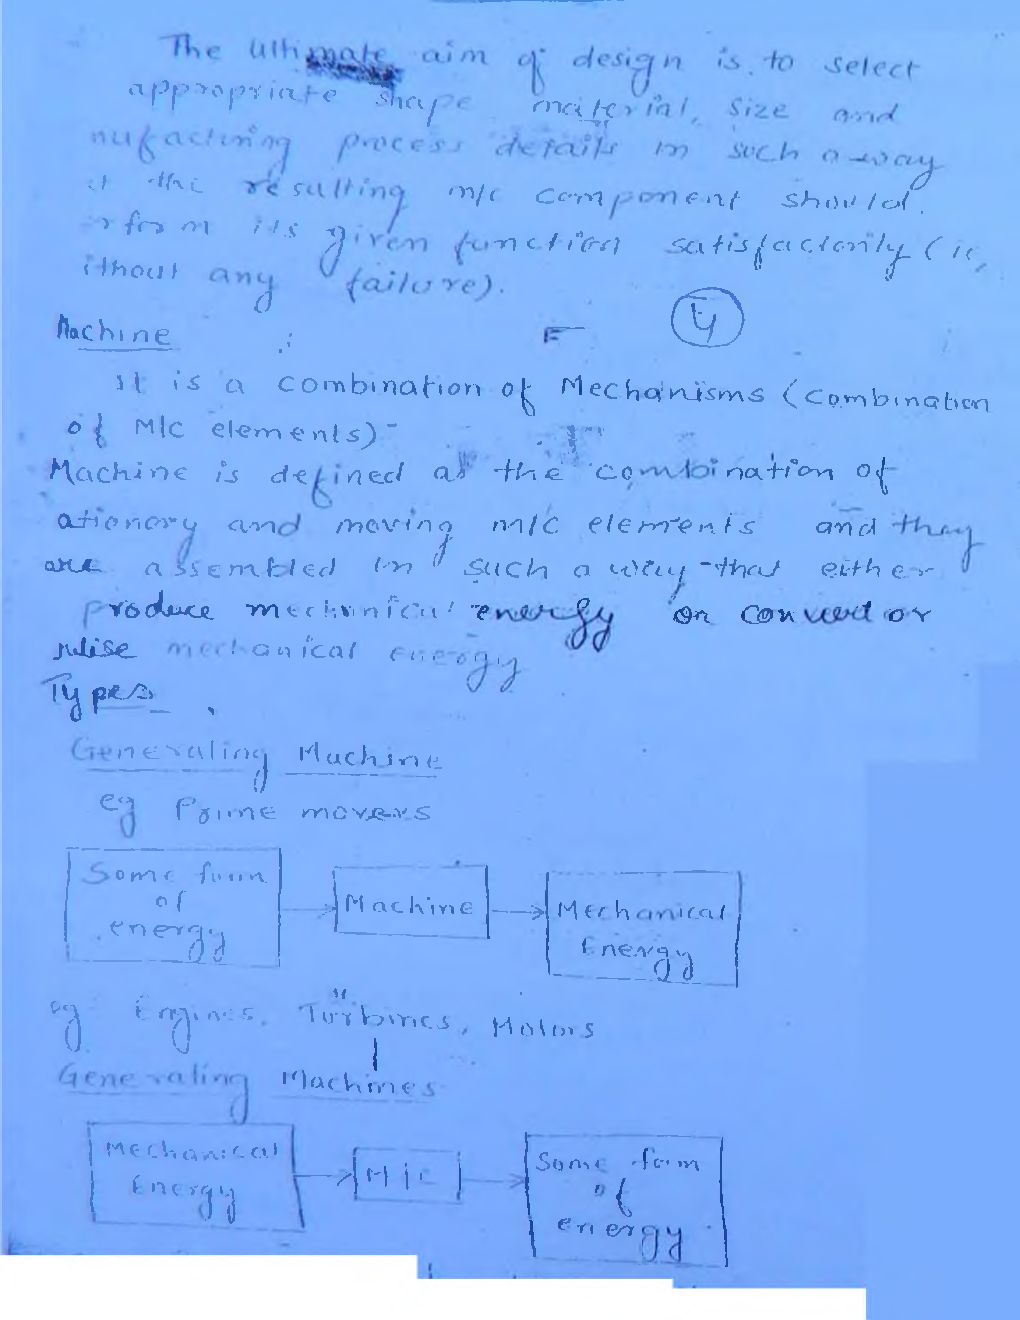 The ultimate aim of design is to select
appropriate shape material, size and
nufacturing process details in such a way
t the resulting m/c component should
rform its given function satisfactorily (ie,
ithout any failure).
4
Machine
It is a combination of Mechanisms (combination
of M/C elements)
Machine is defined as the combination of
ationary and moving m/c elements and they
are assembled in such a way that either
produce mechanical energy or convert or
utilise mechanical energy
Types
Generating Machine
eg Prime movers
Some form
of
energy
Machine
Mechanical
Energy
eg Engines, Turbines, Motors
Generating Machines
Mechanical
Energy
M/C
Some form
of
energy